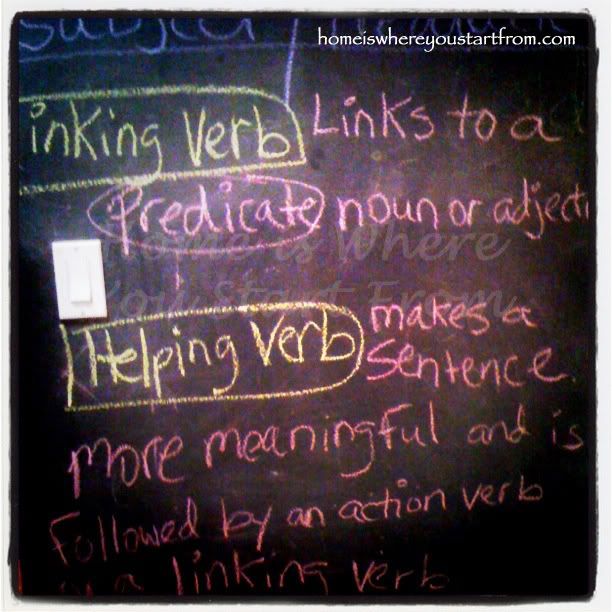 homeiswhereyoustartfrom.com
subject
inking verb Links to a
predicate noun or adjecti
Home is Where
You Start From
Helping verb makes a
sentence
more meaningful and is
Followed by an action verb
or a linking verb